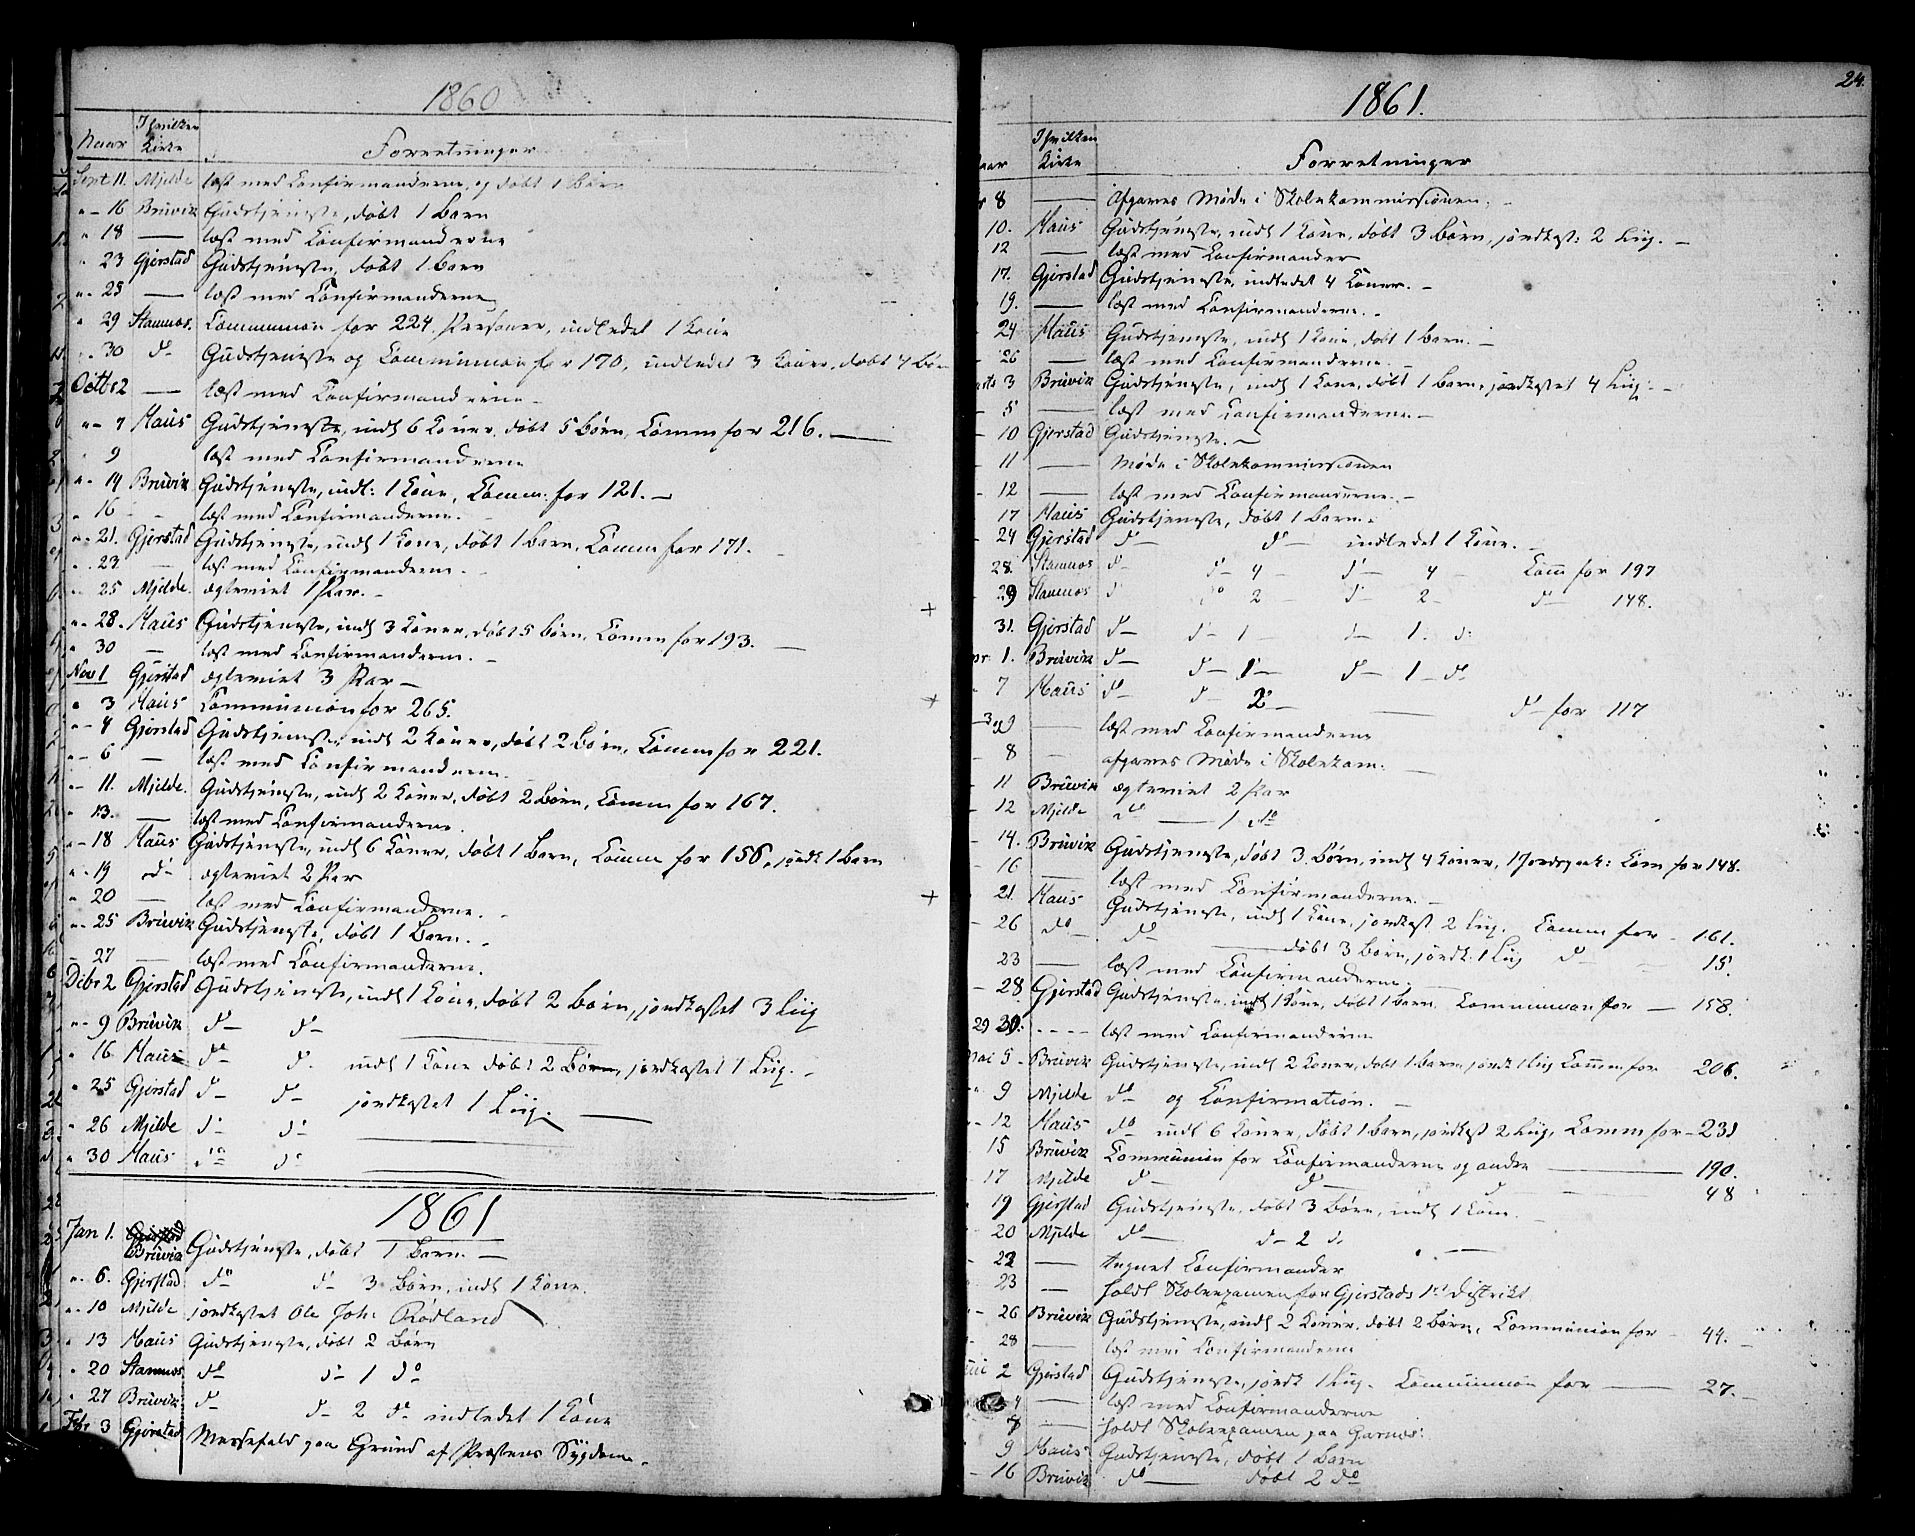 1860
Naar I hvilken Kirke Forretninger
Sept 11. Mjelde læst med Confirmanderne, og døbt 1 Barn
" - 16 Brüvik Gudstjeneste, døbt 1 Barn
" 18 — læst med Confirmanderne
" 23 Gjerstad Gudstjeneste, døbt 1 Barn
" - 25 — læst med Confirmanderne
" 29 Stamnos. Communion for 224 Personer, indledet 1 Kone
" - 30 do Gudstjeneste og Communion for 170, indledet 3 Koner, døbt 4 Børn
Octbr 2 — læst med Confirmanderne -
" - 7 Haus Gudstjeneste, indl 6 Koner, døbt 5 Børn, Comm for 216. —
" 9 læst med Confirmanderne
" - 14 Brüvik Gudstjeneste, indl: 1 Kone, Comm: for 121. —
" 16 - - læst med Confirmanderne. -
" - 21. Gjerstad Gudstjeneste, indl 1 Kone, døbt 1 Barn, Comm for 171.
" - 23 — læst med Confirmanderne. -
" - 25 Mjelde. ægteviet 1 Par. -
" - 28. Haus Gudstjeneste, indl 3 Koner, døbt 5 Børn, Comm for 193. —
" 30 — læst med Confirmanderne. -
Nov 1 Gjerstad ægteviet 3 Par —
" 3 Haus Communion for 265.
" - 4 Gjerstad Gudstjeneste, indl 2 Koner, døbt 2 Børn, Comm for 221.
" - 6 — læst med Confirmanderne.
" - 11. Mjelde. Gudstjeneste, indl 2 Koner, døbt 2 Børn, Comm for 167.
" 13. — læst med Confirmanderne.
" - 18 Haus Gudstjeneste, indl 6 Koner, døbt 1 Barn, Comm for 156, jordk 1 Barn
" - 19 do ægteviet 2 Par
" 20 — læst med Confirmanderne. -
" - 25 Brüvik Gudstjeneste, døbt 1 Barn. -
- 27 — læst med Confirmanderne.
Debr 2 Gjerstad Gudstjeneste, indl 1 Kone, døbt 2 Børn, jordkastet 3 Liig
" - 9 Brüvik do — do —
" 16 Haus do — do indl 1 Kone døbt 2 Børn, jordkastet 1 Liig. -
" 25 Gjerstad do — do — jordkastet 1 Liig. —
" 26 Mjelde do do —
" 30 Haus do do —
1861
Jan 1. Brüvik Gudstjeneste, døbt 1 Barn. —
" - 6. Gjerstad do do 3 Børn, indl 1 Kone.
" - 10 Mjelde jordkastet Ole Joh: Rødland
" 13 Haus Gudstjeneste, døbt 2 Børn
" 20 Stamnos do do 1 do
" 27 Brüvik do — do — 2 do indledet 1 Kone
Fbr 3 Gjerstad Messefald paa Grund af Præstens Sygdom. -
24.
1861.
I hvilken Kirke Forretninger
8 — Afgaves Møde i Skolekommissionen. -
10. Haus Gudstjeneste, indl 1 Kone, døbt 3 Børn, jordkast: 2 Liig. —
12 — læst med Confirmander
17. Gjerstad Gudstjeneste, indledet 4 Koner. -
19. — læst med Confirmanderne. -
24 Haus Gudstjeneste, indl 1 Kone, døbt 1 Barn. —
- 26 — læst med Confirmanderne.
3 Brüvik Gudstjeneste, indl 1 Kone, døbt 1 Barn, jordkastet 4 Liig. —
- 5 — læst med Confirmanderne. —
- 10 Gjerstad Gudstjeneste. —
- 11 — Møde i Skolekommissionen
- 12 — læst med Confirmanderne. -
17 Haus Gudstjeneste, døbt 1 Barn. -
- 24 Gjerstad do — do — indledet 1 Kone. -
28. Stamnos do — do — 4 — do — 4 — Comm for 197
- 29 Stamnos do do 2 do — 2 - do — 148.
31. Gjerstad do — do — 1 — do — 1. do
1. Brüvik do — do — 1 — do — 1 — do
7 Haus do — do — 2 — — do — for 117
9 — læst med Confirmanderne
8 — afgaves Møde i Skolekom: —
- 11 Brüvik ægteviet 2 Par
- 12 Mjelde do — 1 do
- 14. Brüvik Gudstjeneste, døbt 3 Børn, indl 4 Koner, 1 Jordspaak: Com for 148.
16 — læst med Confirmanderne. -
21. Haus Gudstjeneste, indl 1 Kone, jordkast 2 Liig. Comm for - 161.
- 26 do — do — døbt 3 Børn, jordk. 1 Liig do — 15.
23 — læst med Confirmanderne. —
- 28 Gjerstad Gudstjeneste, indl 1 Kone, døbt 1 Barn. Communion for — 158.
29 30. - - - - læst med Confirmanderne
Mai 5 - Brüvik Gudstjeneste, indl 2 Koner, døbt 1 Barn, jordk 1 Liig Comm for 206.
9 Mjelde do og Confirmation. —
- 12 Haus do indl 6 Koner, døbt 1 Barn, jordkast 2 Liig, Comm for - 231
15 Brüvik Communion for Confirmanderne og andre — 190.
- 17 Mjelde do — do — do — 48
19 Gjerstad Gudstjeneste, døbt 3 Børn, indl 1 Kone. -
- 20 Mjelde do — do — 2 do —
- 22 — tegnet Confirmander
- 23 — holdt Skoleexamen for Gjerstads 1ste Distrikt.
- 26 Brüvik Gudstjeneste, indl 2 Koner, døbt 2 Børn, Communion for - 44. —
28 — læst med Confirmanderne
2 Gjerstad Gudstjeneste, jordk 1 Liig. Communion for — 27. -
4 — læst med Confirmanderne
8 — holdt Skoleexamen paa Garnæs.
9 Haus Gudstjeneste, døbt 1 Barn
- 16 Brüvik do — døbt 2 do